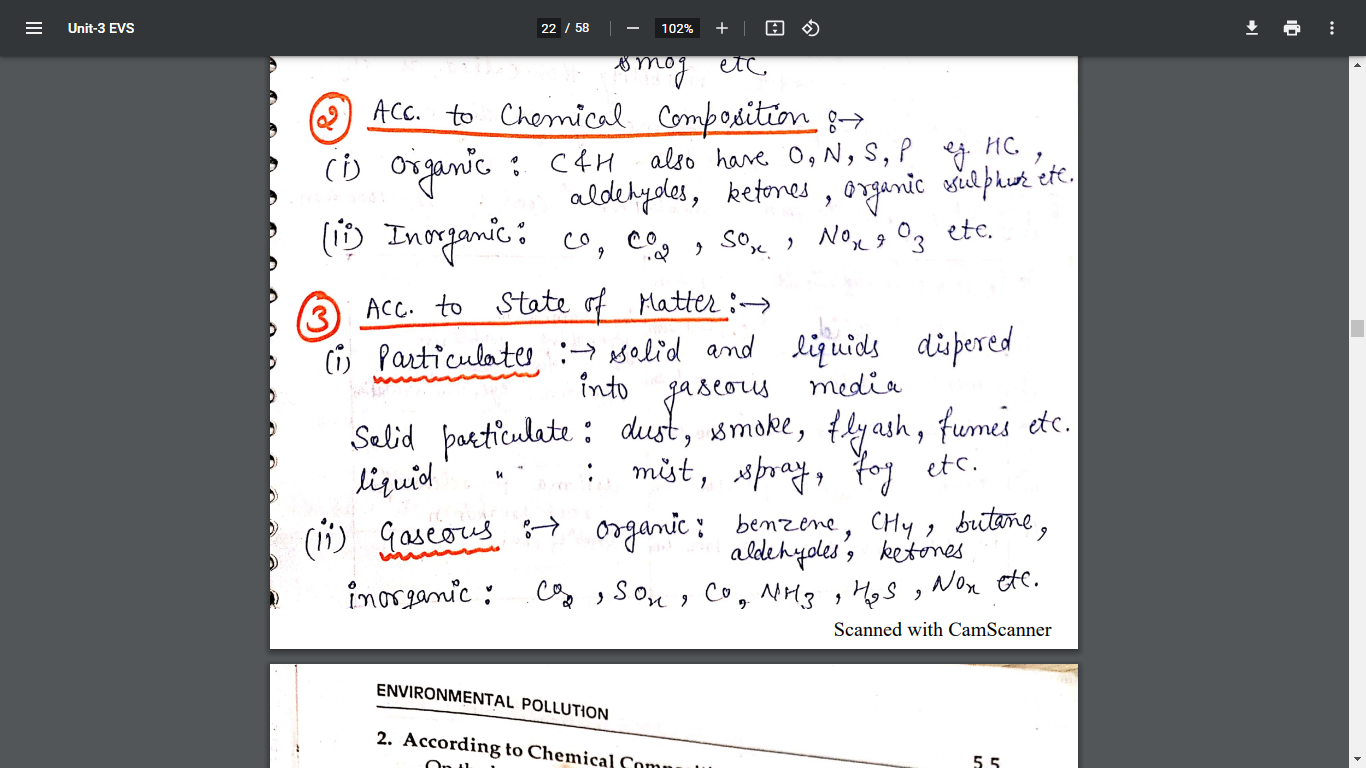 Unit-3 EVS
22 / 58
102%
smog etc.
② Acc. to Chemical Composition :→
(i) Organic : C & H also have O, N, S, P eg. HC,
aldehydes, ketones, organic sulphur etc.
(ii) Inorganic : CO, CO2, SOx, NOx, O3 etc.
③ Acc. to State of Matter :→
(i) Particulates :→ solid and liquids dispered
into gaseous media
Solid particulate : dust, smoke, flyash, fumes etc.
liquid " : mist, spray, fog etc.
(ii) Gaseous :→ organic : benzene, CH4, butane,
aldehydes, ketones
inorganic : CO2, SOx, CO, NH3, H2S, NOx etc.
Scanned with CamScanner
ENVIRONMENTAL POLLUTION
55
2. According to Chemical